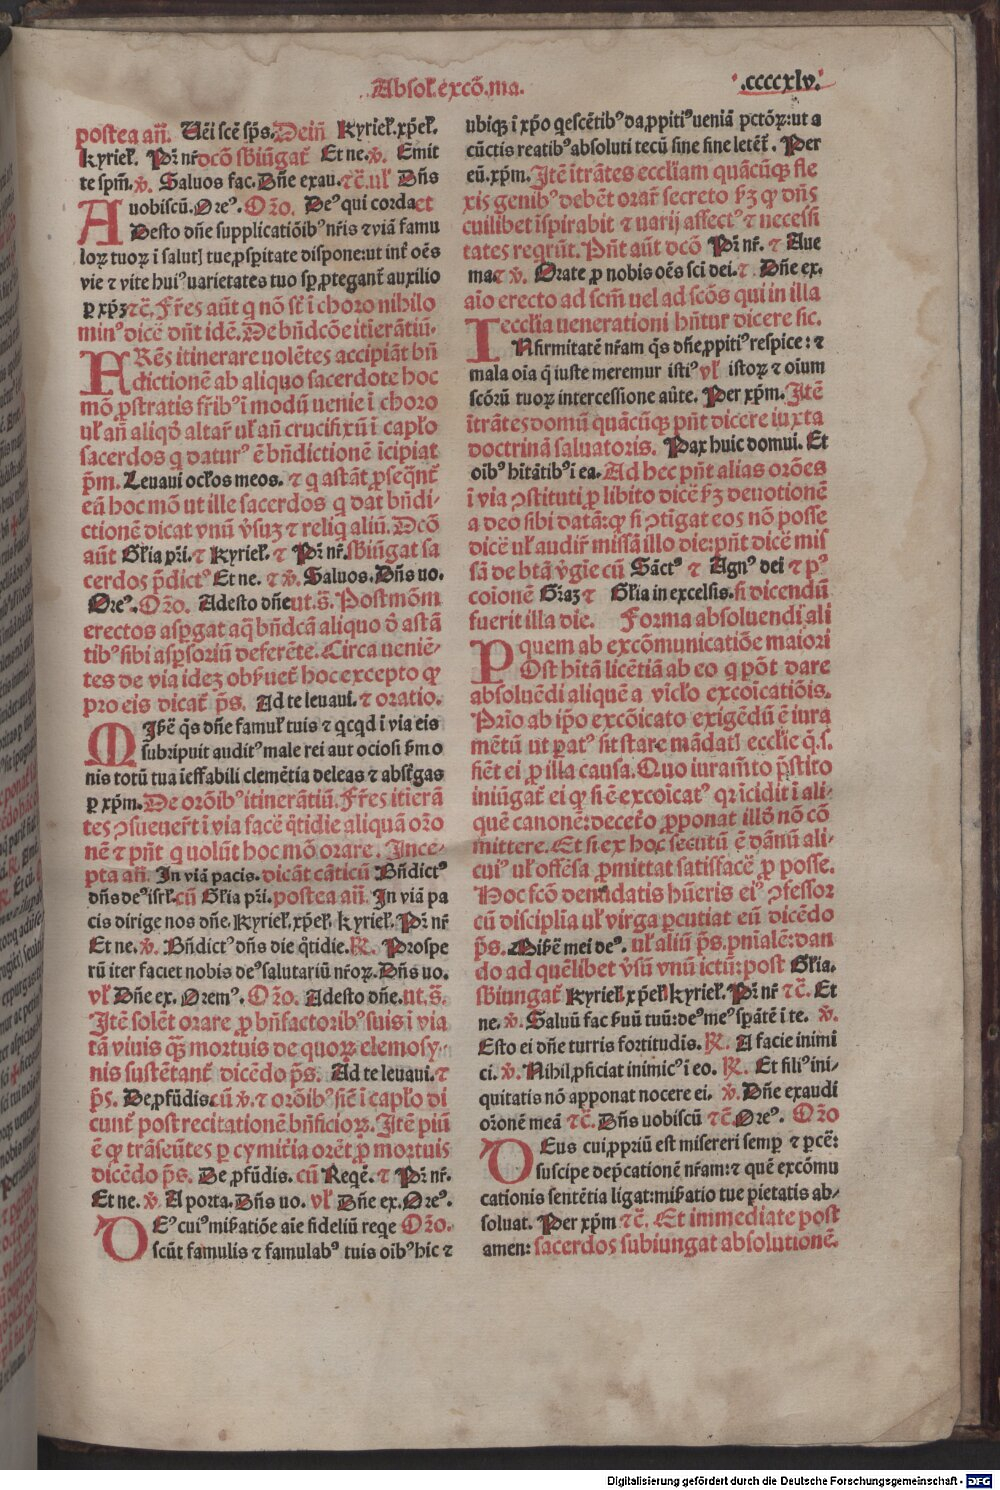 Absoł.excō.ma.
.ccccxlv.
postea añ. Uēi scē sp̄s. Deiñ Kyrieł.xp̄eł.
Kyrieł. Pr̄ nr̄ dcō sbiūgat̄ Et ne. v̄. Emit
te spm̄. v̄. Saluos fac. Dñe exau. ⁊c̄. uł Dñs
uobiscū. Oreꝰ. Oŕo. Deꝰ qui corda et
Adesto dñe supplicatiōibꝰ nr̄is ⁊ viā famu
loꝝ tuoꝝ i salutꝭ tue ꝓspitate dispone: ut int̄ oēs
vie ⁊ vite huiꝰ varietates tuo sp ꝓtegant̄ auxilio
ꝑ xp̄ꝫ ⁊c̄. Fr̄es aūt q nō st̄ i choro nihilo
minꝰ dicē dn̄t idē. De bn̄dcōe itierātiū.
FRēs itinerare uolētes accipiāt bn̄
dictionē ab aliquo sacerdote hoc
mō ꝓstratis fr̄ibꝰ i modū uenie i choro
uł añ aliqd̄ altar̄ uł añ crucifixū i capłο
sacerdos q daturꝰ ē bn̄dictionē icipiat
p̄m. Leuaui ocłos meos. ⁊ q astāt ꝓseqn̄t̄
eā hoc mō ut ille sacerdos q dat bn̄di-
ctionē dicat vnū v̄suꝫ ⁊ reliq aliū. Dcō
aūt Głia pr̄i. ⁊ Kyrieł. ⁊ Pr̄ nr̄. sbiūgat sa
cerdos p̄dictꝰ Et ne. ⁊ v̄. Saluos. Dñs uo.
Oreꝰ. Oŕo. Adesto dñe ut.s̄. Postmōm
erectos aspgat aq bn̄dcā aliquo d̄ astā
tibꝰ sibi aspsoriū deferēte. Circa ueniē-
tes de via ideꝫ obfuet̄ hoc excepto ꝙ
pro eis dicat̄ p̄s. Ad te leuaui. ⁊ oratio.
MIsē qs dñe famuł tuis ⁊ qcqd i via eis
subripuit auditꝰ male rei aut ociosi sm̄o
nis totū tua ieffabili clemētia deleas ⁊ abst̄gas
ꝑ xp̄m. De orōibꝰ itinerātiū. Fr̄es itierā
tes ꝯsueuer̄t i via facē qtidie aliquā oŕo
nē ⁊ pn̄t q uolūt hoc mō orare. Ince-
pta añ. In viā pacis. dicāt cāticū Bn̄dictꝰ
dñs deꝰ isrł. cū Głia pr̄i. postea añ. In viā pa
cis dirige nos dñe. Kyrieł. xp̄eł. kyrieł. Pr̄ nr̄
Et ne. v̄. Bn̄dictꝰ dñs die qtidie. ℟. Prospe
rū iter faciet nobis deꝰ salutariū nr̄oꝝ. Dñs uo.
vł Dñe ex. Oremꝰ. Oŕo. Adesto dñe. ut.s̄.
Itē solēt orare ꝓ bn̄factoribꝰ suis i via
tā viuis qꝫ mortuis de quoꝝ elemosy-
nis sustētant̄ dicēdo p̄s. Ad te leuaui. ⁊
p̄s. De ꝓfūdis. cū v̄. ⁊ orōibꝰ siē i capło di
cunt̄ post recitationē bn̄ficioꝝ. Itē piū
ē ꝙ trāseūtes ꝑ cymitīa orēt ꝓ mortuis
dicēdo p̄s. De ꝓfūdis. cū Reqē. ⁊ Pr̄ nr̄.
Et ne. v̄. A porta. Dñs uo. vł Dñe ex. Oreꝰ.
DEꝰ cuiꝰ misatiōe aīe fideliū reqe Oŕo.
scūt famulis ⁊ famulabꝰ tuis oibꝰ hic ⁊
ubiqꝫ i xp̄o qescētibꝰ da ꝓpitiꝰ ueniā pctōꝝ: ut a
cūctis reatibꝰ absoluti tecū sine fine letēt̄. Per
eū. xp̄m. Itē itrātes ecclīam quācūqꝫ fle
xis genibꝰ debēt orar̄ secreto sꝫ ꝙ dñs
cuilibet ispirabit ⁊ uarij affectꝰ ⁊ necessi
tates reqrūt. Pn̄t aūt dcō Pr̄ nr̄. ⁊ Aue
ma. ⁊ v̄. Orate ꝓ nobis oēs sci dei. ⁊. Dñe ex.
aīo erecto ad scm̄ uel ad scōs qui in illa
ecclīa uenerationi hn̄tur dicere sic.
INfirmitatē nr̄am qs dñe ꝓpitiꝰ respice: ⁊
mala oīa q iuste meremur istiꝰ vł istoꝝ ⁊ oīum
scōrū tuoꝝ intercessione aūte. Per xp̄m. Itē
itrātes domū quācūqꝫ pn̄t dicere iuxta
doctrinā saluatoris. Pax huic domui. Et
oibꝰ hītātibꝰ i ea. Ad hec pn̄t alias orōes
i via ꝯstituti ꝓ libito dicē sꝫ deuotionē
a deo sibi datā: ꝙ si ꝯtīgat eos nō posse
dicē uł audir̄ missā illo die: pn̄t dicē mis
sā de btā v̄gīe cū Sāctꝰ ⁊ Agnꝰ dei ⁊ pꝰ
coionē Gr̄aꝫ ⁊ Głia in excelsis. si dicendū
fuerit illa die. Forma absoluendi ali
quem ab excōmunicatiōe maiori
POst hītā licētiā ab eo q pōt dare
absoluēdi aliquē a vīcło excoīcatiōis.
Prīo ab ipo excōicato exigēdū ē iura
mētū ut patꝰ sit stare mādatꝭ ecclīe q.s.
fiēt ei ꝓ illa causa. Quo iuram̄to p̄stito
iniūgat̄ ei ꝙ si ē excoīcatꝰ qr icidit i ali-
quē canonē: decet̄o ꝓponat illd̄ nō cō
mittere. Et si ex hoc secutū ē dānū ali-
cuiꝰ uł offēsa ꝓmittat satisfacē ꝓ posse.
Hoc fcō denudatis hūeris eiꝰ ꝯfessor
cū disciplīa uł virga ꝑcutiat eū dicēdo
p̄s. Misē mei deꝰ. uł aliū p̄s. pnīalē: dan
do ad quēlibet v̄sū vnū ictū: post Głia.
sbiungat̄ Kyrieł xp̄eł kyrieł. Pr̄ nr̄ ⁊c̄. Et
ne. v̄. Saluū fac suū tuū: deꝰ meꝰ spātē i te. v̄.
Esto ei dñe turris fortitudis. ℟. A facie inimi
ci. v̄. Nihil ꝓficiat inimicꝰ i eo. ℟. Et filiꝰ ini-
quitatis nō apponat nocere ei. v̄. Dñe exaudi
oŕonē meā ⁊c̄. Dñs uobiscū ⁊c̄. Oreꝰ. Oŕo
DEus cui ꝓpriū est misereri semp ⁊ pcē:
suscipe dep̄cationē nr̄am: ⁊ quē excōmu
cationis sentētia ligat: misatio tue pietatis ab-
soluat. Per xp̄m ⁊c̄. Et immediate post
amen: sacerdos subiungat absolutionē.
Digitalisierung gefördert durch die Deutsche Forschungsgemeinschaft - DFG